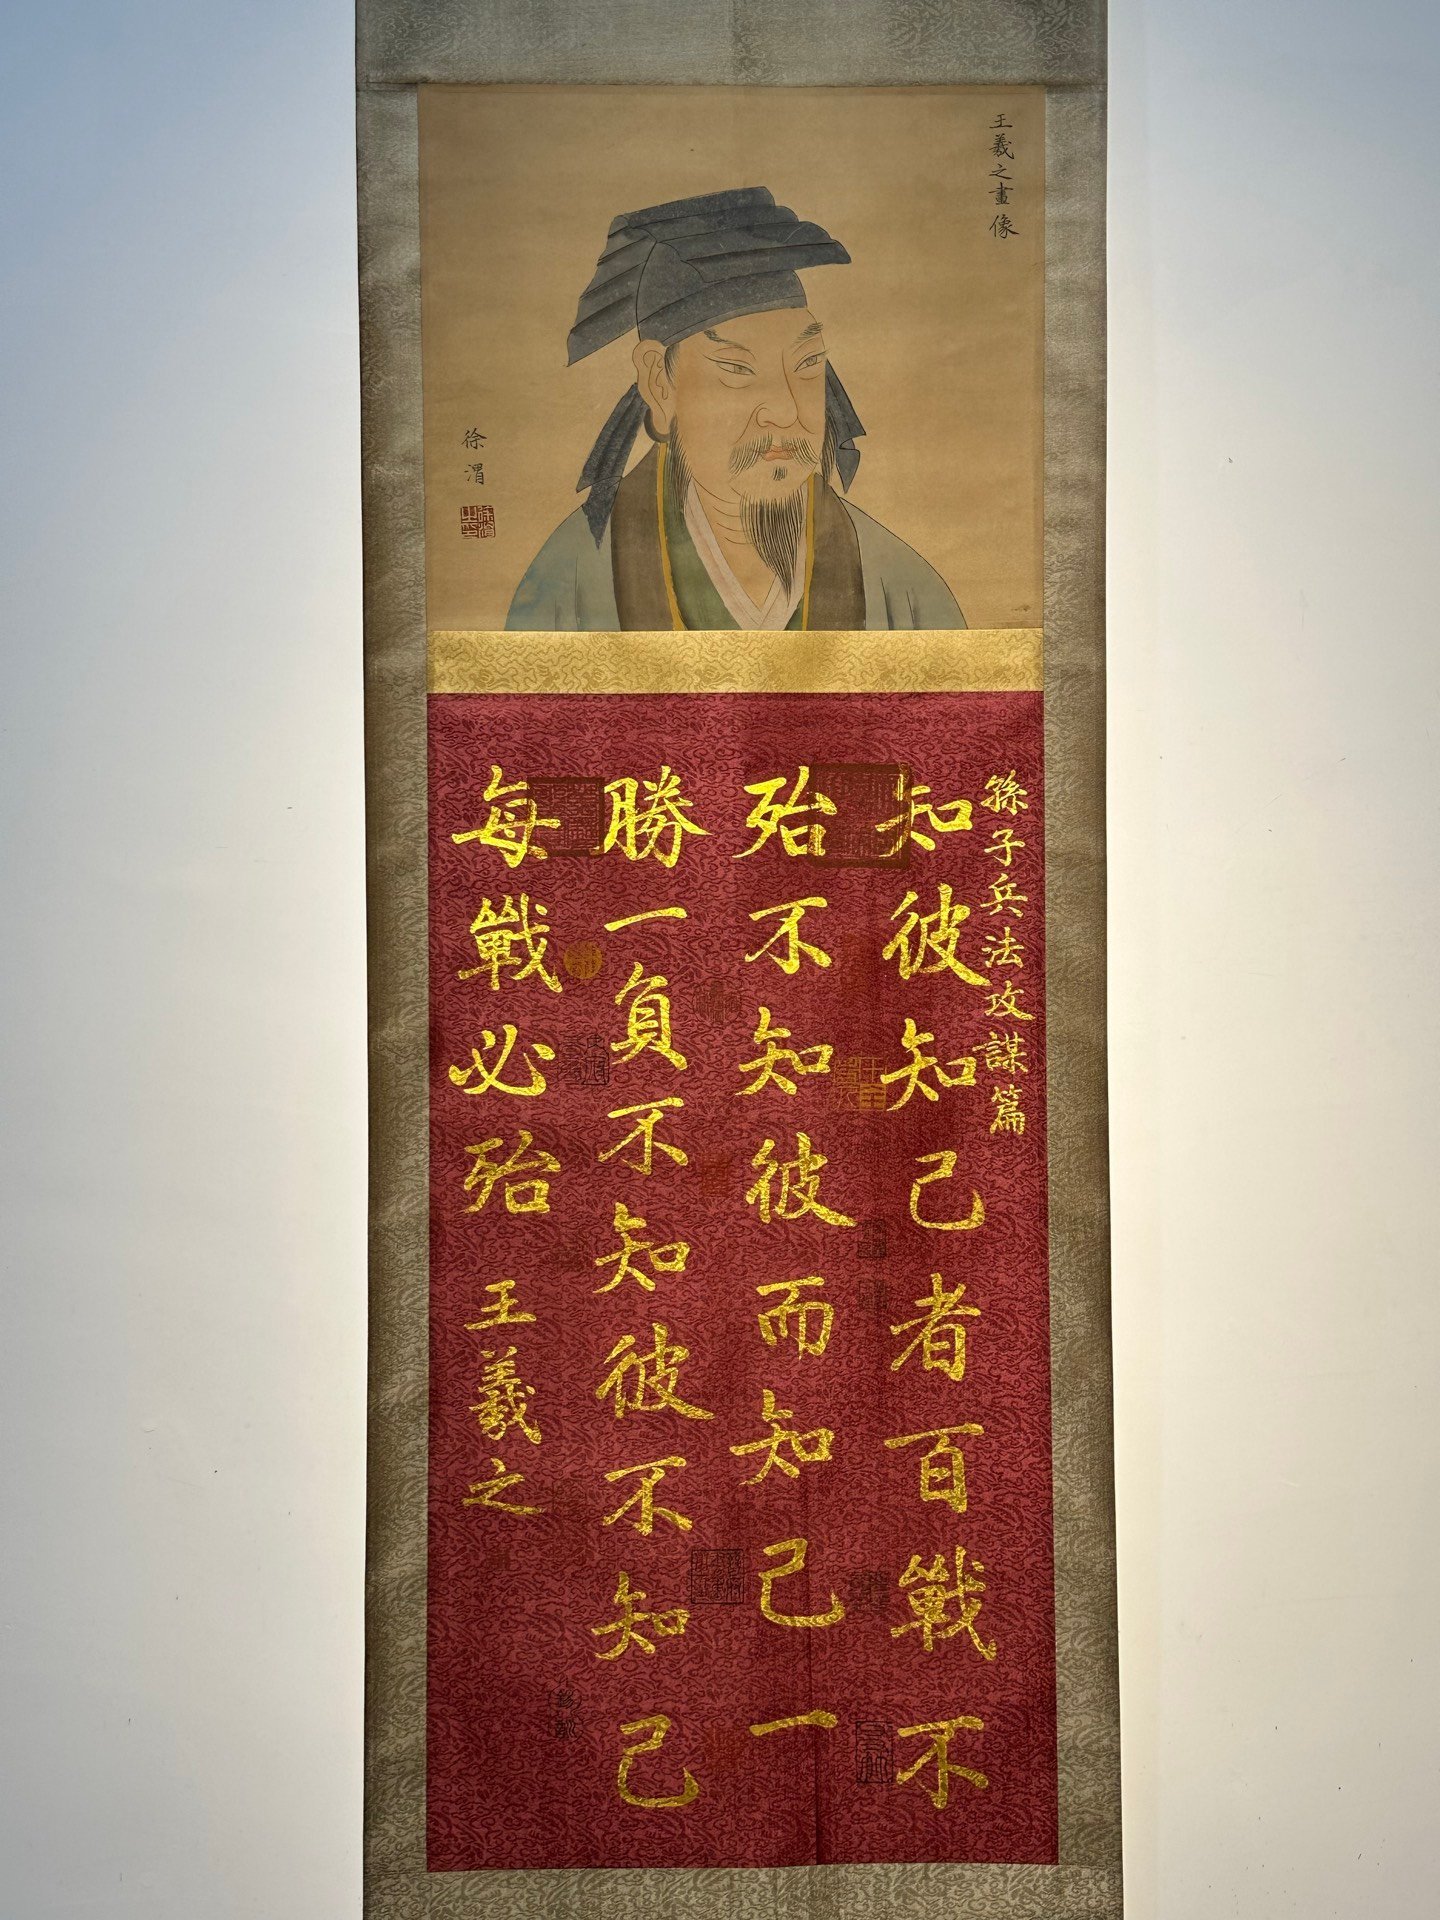 王羲之畫像
徐渭
孫子兵法攻謀篇
知彼知己者百戰不
殆不知彼而知己一
勝一負不知彼不知己
每戰必殆
王羲之